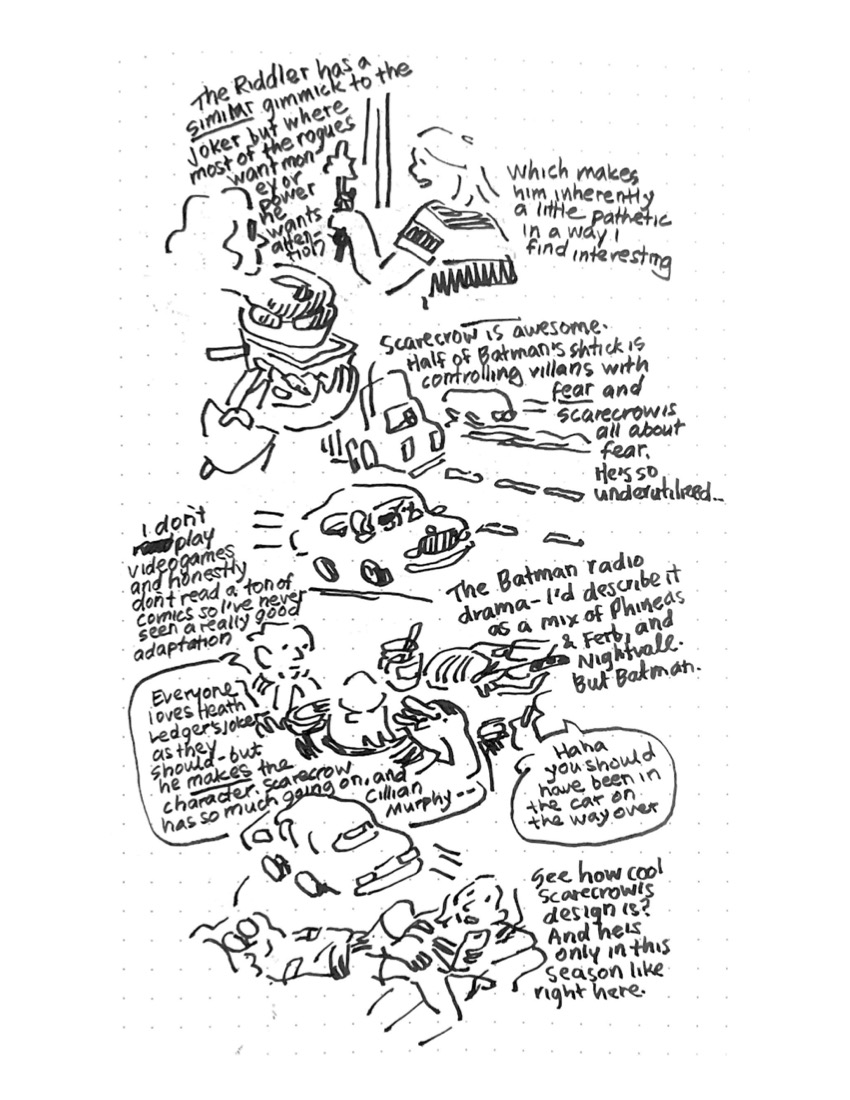 The Riddler has a
similar gimmick to the
Joker but where
most of the rogues
want mon-
ey or
power
he
wants
atten-
tion
Which makes
him inherently
a little pathetic
in a way I
find interesting
Scarecrow is awesome.
Half of Batman's shtick is
controlling villans with
fear and
scarecrow is
all about
fear.
He's so
underutilized...
I don't
play
videogames
and honestly
don't read a ton of
comics so I've never
seen a really good
adaptation
The Batman radio
drama-I'd describe it
as a mix of Phineas
& Ferb, and
Nightvale.
But Batman.
Everyone
loves Heath
Ledger's Joker
as they
should-but
he makes the
character. scarecrow
has so much going on, and
Cillian
Murphy--
Haha
you should
have been in
the car on
the way over
See how cool
Scarecrow's
design is?
And he is
only in this
season like
right here.